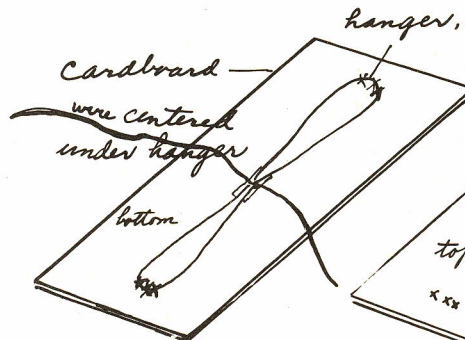 hanger.
cardboard
wire centered
under hanger
bottom
top
xxx